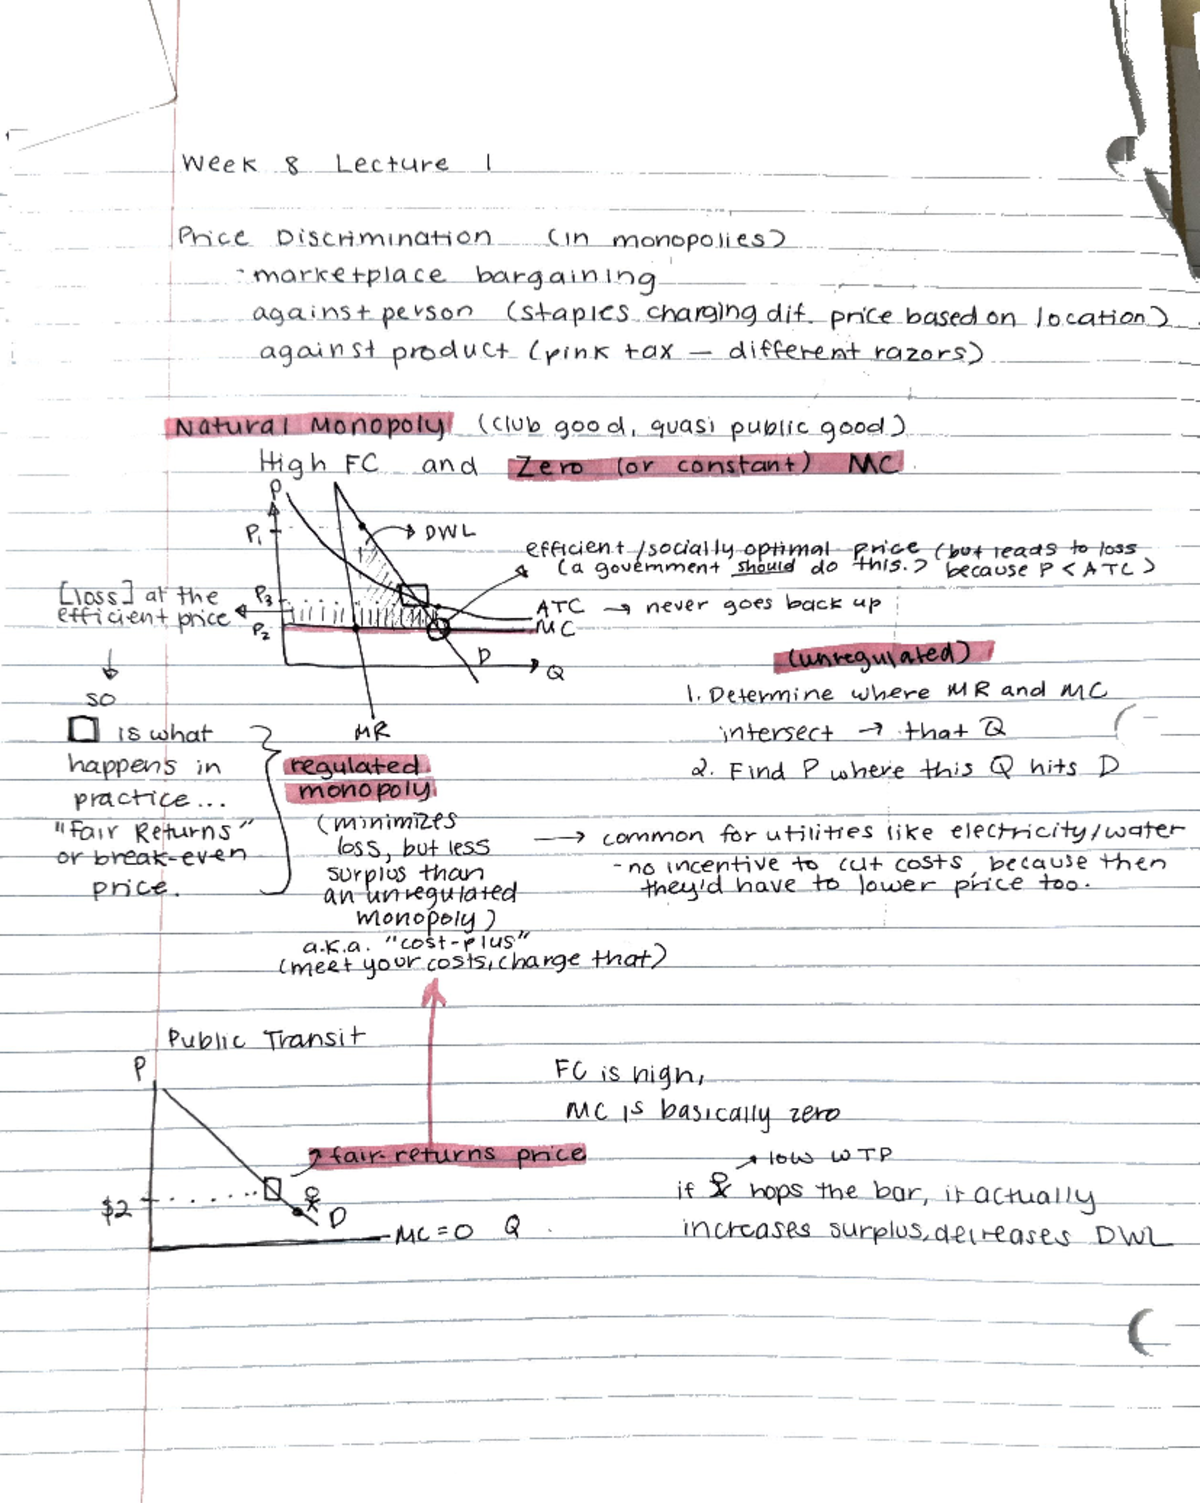 Week 8 Lecture 1
Price Discrimination (in monopolies)
- marketplace bargaining
against person (staples charging dif. price based on location)
against product (pink tax — different razors)
Natural Monopoly (club good, quasi public good)
High FC and Zero (or constant) MC
P
P1
→ DWL
efficient/socially optimal price (but leads to loss
(a government should do this.) because P < ATC)
[loss] at the
efficient price
P3
P2
ATC → never goes back up
MC
D
Q
MR
↓
so
□ is what
happens in
practice...
"Fair Returns"
or break-even
price.
regulated
monopoly
(minimizes
loss, but less
surplus than
an unregulated
monopoly)
a.k.a. "cost-plus"
(meet your costs, charge that)
(unregulated)
1. Determine where MR and MC
intersect → that Q
2. Find P where this Q hits D
→ common for utilities like electricity/water
- no incentive to cut costs, because then
they'd have to lower price too.
Public Transit
P
FC is high,
MC is basically zero
fair-returns price
$2
D
MC = 0 Q
low WTP
if hops the bar, it actually
increases surplus, decreases DWL